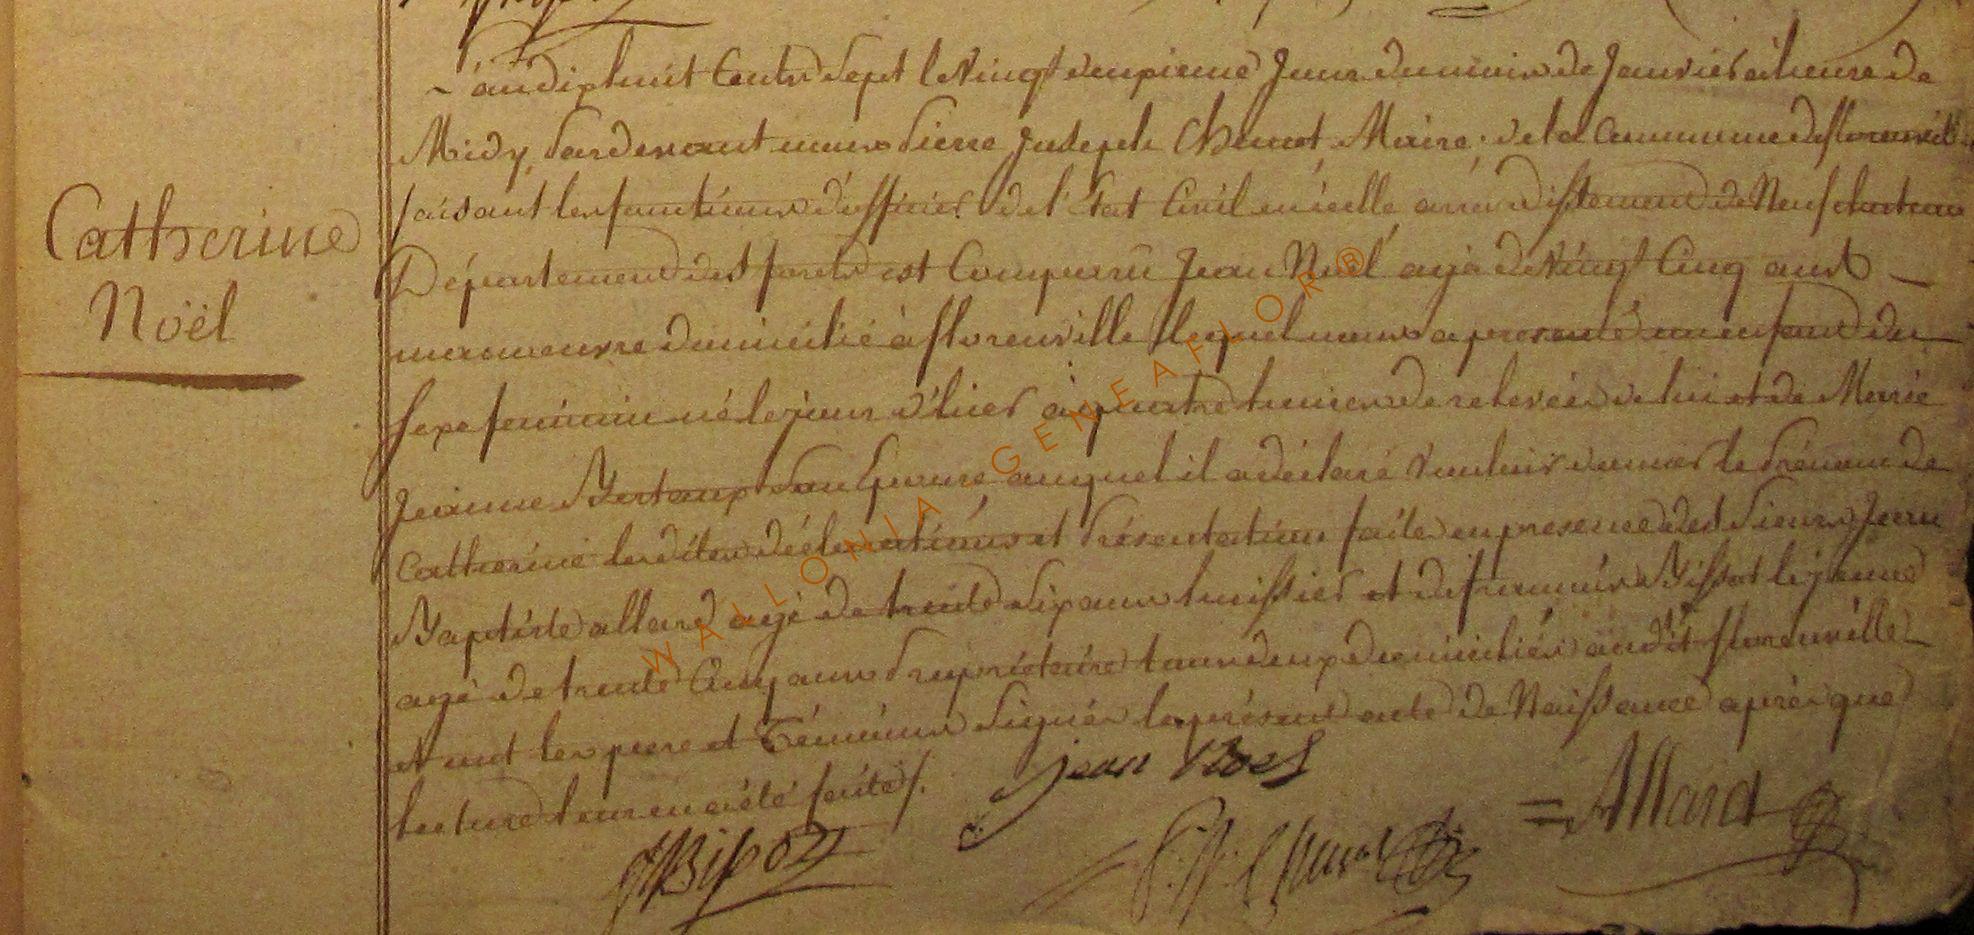 Catherine
Noël
L'an dix huit Cents Sept le Vingt deuxieme Jour du mois de Janvier à heure de
Midy, Pardevant nous Pierre Joseph Chenot Maire de la Commune de florenville
faisant les fonctions d'officier de l'Etat Civil en icelle arrondissement de Neufchateau
Département des forets est Comparu Jean Noel agé de Vingt Cinq ans
manoeuvre domicilié à florenville lequel nous a presenté un enfant du
sexe feminin né le jour d'hier à quatre heures de relevée de lui et de Marie
Jeanne Bertaux Son Epouse auquel il a déclaré Vouloir donner le Prénom de
Catherine lesdites déclarations et Présentation faites en presence des Sieurs Jean
Baptiste allard agé de trente Six ans huissier et de françois Bissot le jeune
agé de trente Cinq ans Propriétaire tous deux domiciliés audit florenville
et ont les pere et Témoins Signés le présent acte de Naissance après que
lecture leur en a été faite /.
jean Noel
= Allard
P. J. Chenot
WALLONIA GENEAFLOR®